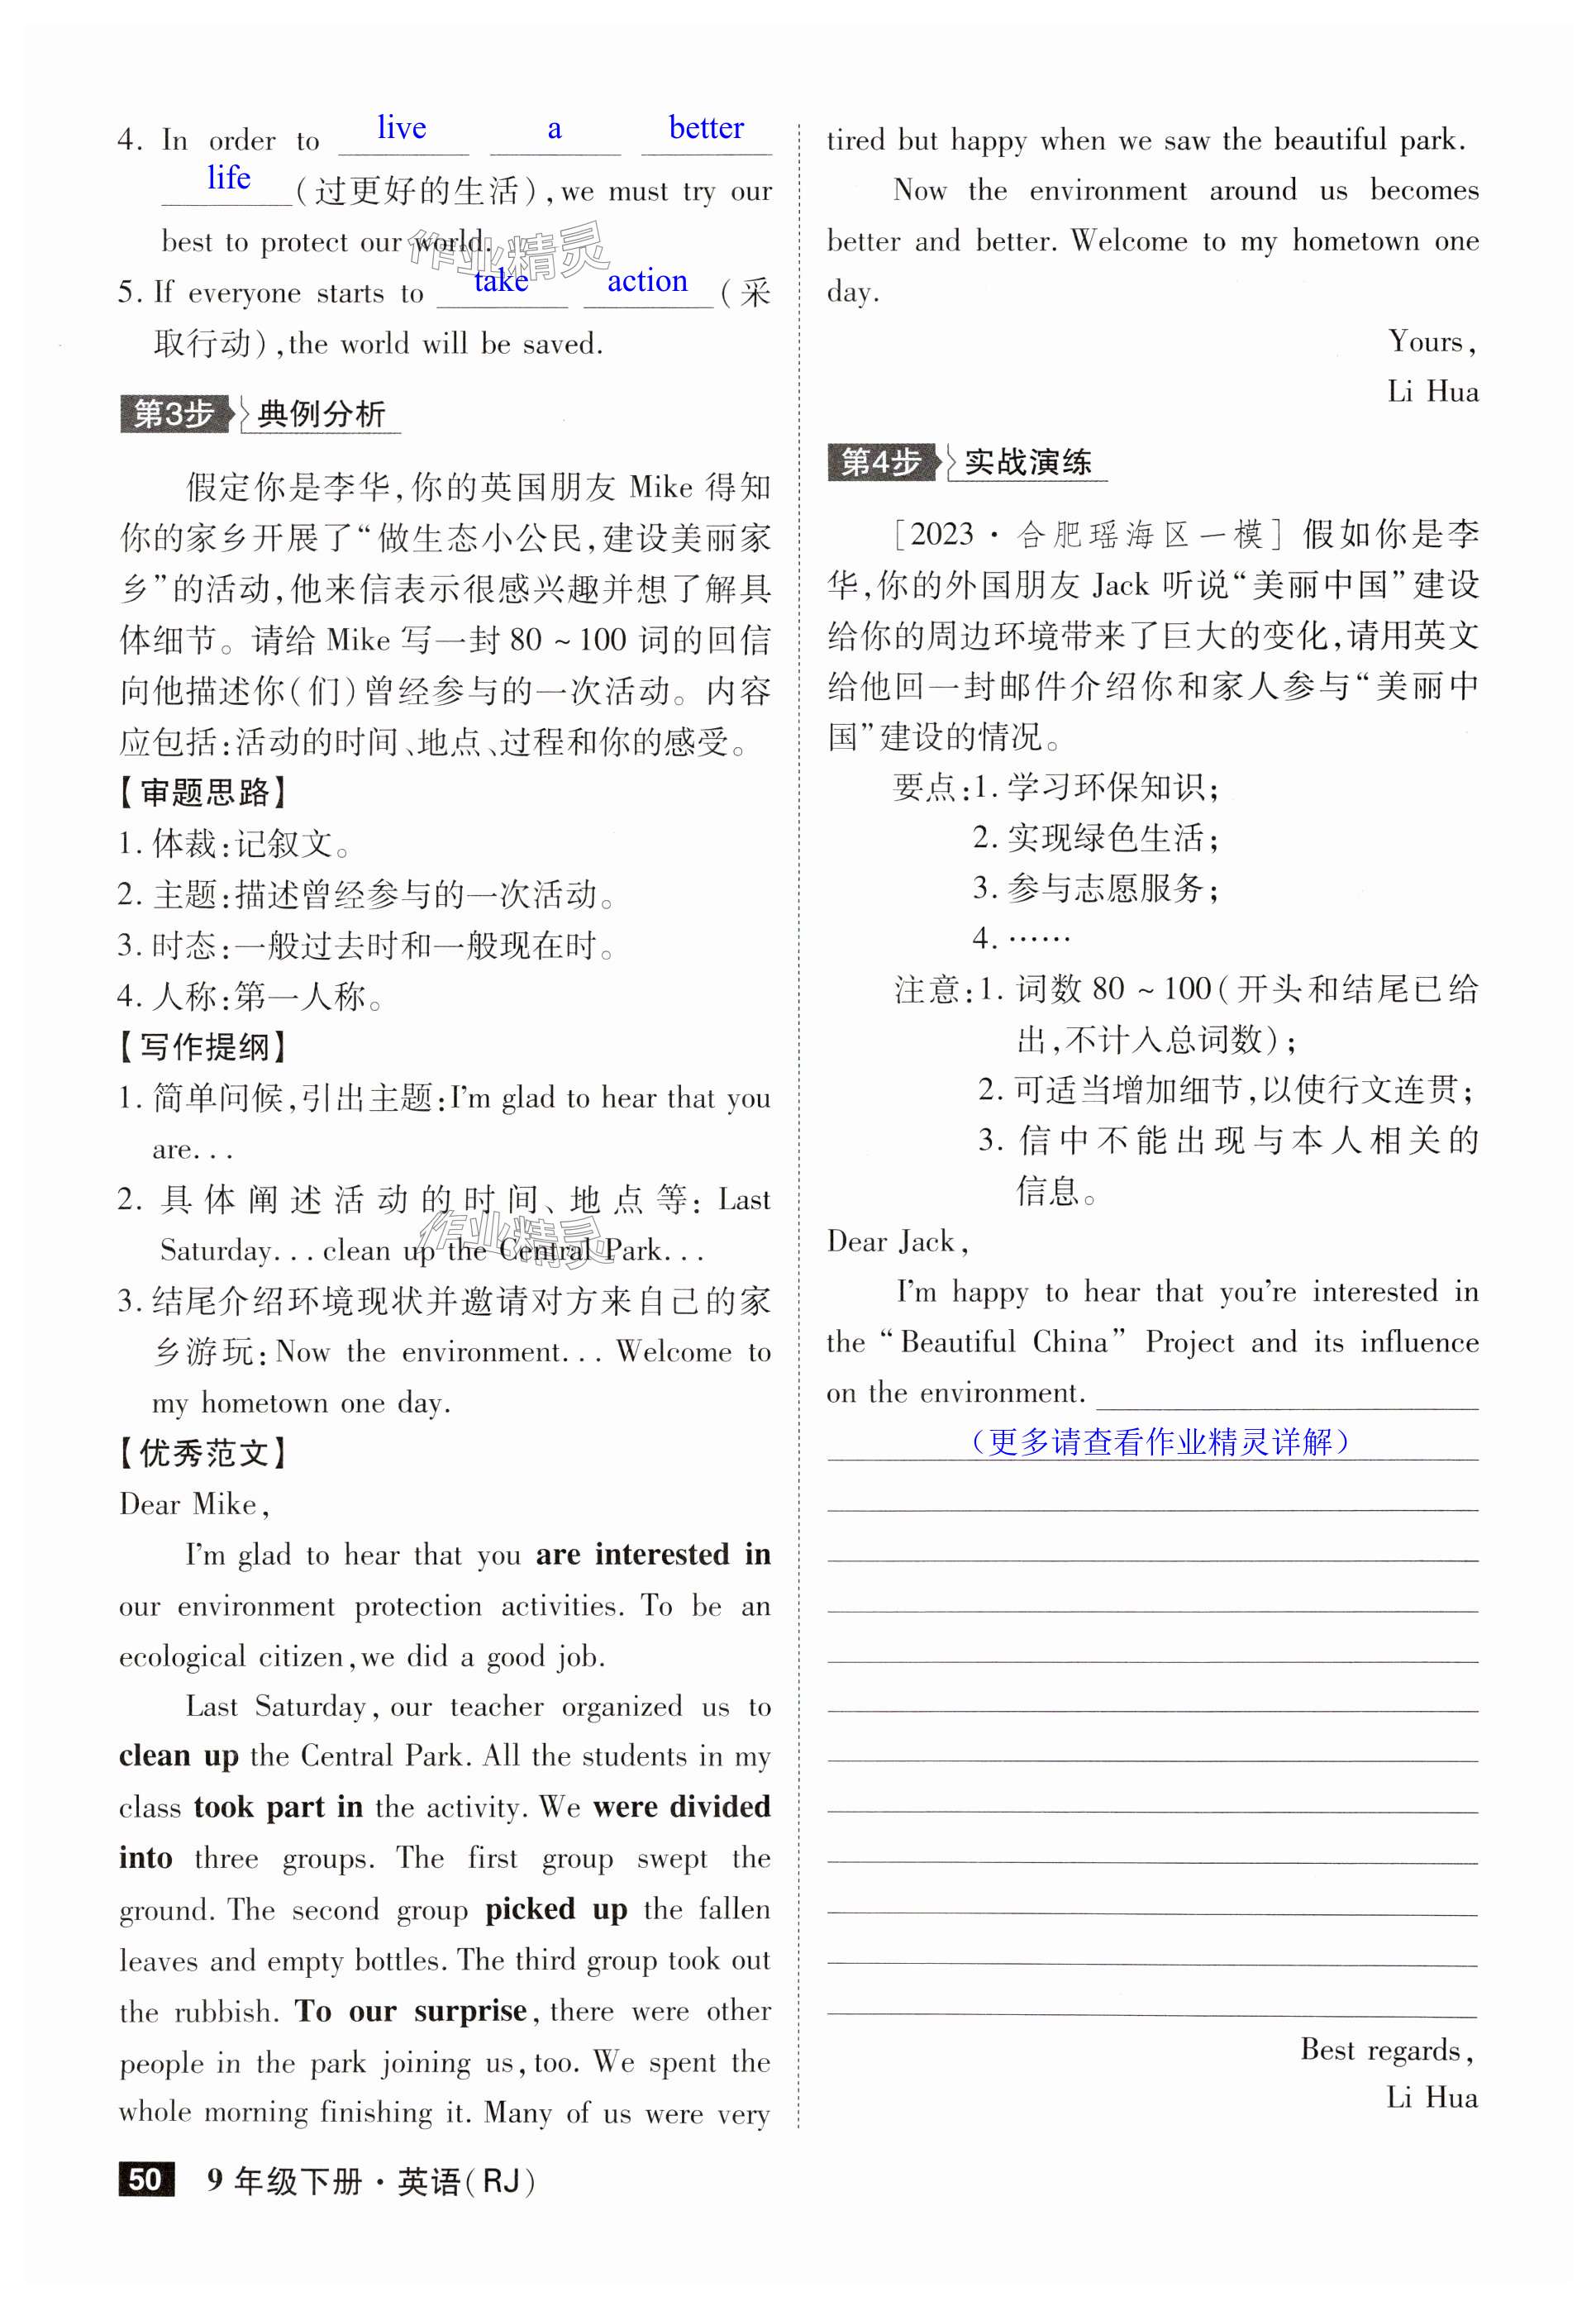 4. In order to live a better
life(过更好的生活),we must try our
best to protect our world.
5. If everyone starts to take action(采
取行动),the world will be saved.
第3步 典例分析
假定你是李华,你的英国朋友 Mike 得知
你的家乡开展了“做生态小公民,建设美丽家
乡”的活动,他来信表示很感兴趣并想了解具
体细节。请给 Mike 写一封 80 ~ 100 词的回信
向他描述你(们)曾经参与的一次活动。内容
应包括:活动的时间、地点、过程和你的感受。
【审题思路】
1. 体裁:记叙文。
2. 主题:描述曾经参与的一次活动。
3. 时态:一般过去时和一般现在时。
4. 人称:第一人称。
【写作提纲】
1. 简单问候,引出主题:I'm glad to hear that you
are...
2. 具体阐述活动的时间、地点等: Last
Saturday... clean up the Central Park...
3. 结尾介绍环境现状并邀请对方来自己的家
乡游玩: Now the environment... Welcome to
my hometown one day.
【优秀范文】
Dear Mike,
I'm glad to hear that you are interested in
our environment protection activities. To be an
ecological citizen,we did a good job.
Last Saturday, our teacher organized us to
clean up the Central Park. All the students in my
class took part in the activity. We were divided
into three groups. The first group swept the
ground. The second group picked up the fallen
leaves and empty bottles. The third group took out
the rubbish. To our surprise, there were other
people in the park joining us, too. We spent the
whole morning finishing it. Many of us were very
tired but happy when we saw the beautiful park.
Now the environment around us becomes
better and better. Welcome to my hometown one
day.
Yours,
Li Hua
第4步 实战演练
[2023·合肥瑶海区一模] 假如你是李
华,你的外国朋友 Jack 听说“美丽中国”建设
给你的周边环境带来了巨大的变化,请用英文
给他回一封邮件介绍你和家人参与“美丽中
国”建设的情况。
要点:1. 学习环保知识;
2. 实现绿色生活;
3. 参与志愿服务;
4. ……
注意:1. 词数 80 ~ 100(开头和结尾已给
出,不计入总词数);
2. 可适当增加细节,以使行文连贯;
3. 信中不能出现与本人相关的
信息。
Dear Jack,
I'm happy to hear that you're interested in
the “Beautiful China” Project and its influence
on the environment.
(更多请查看作业精灵详解)
Best regards,
Li Hua
50 9年级下册·英语(RJ)
作业精灵
作业精灵